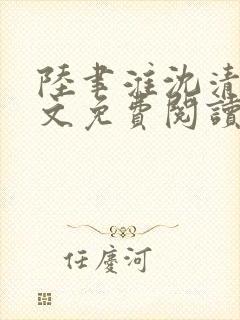 陸書淮沈清
文免費閱讀
任慶河